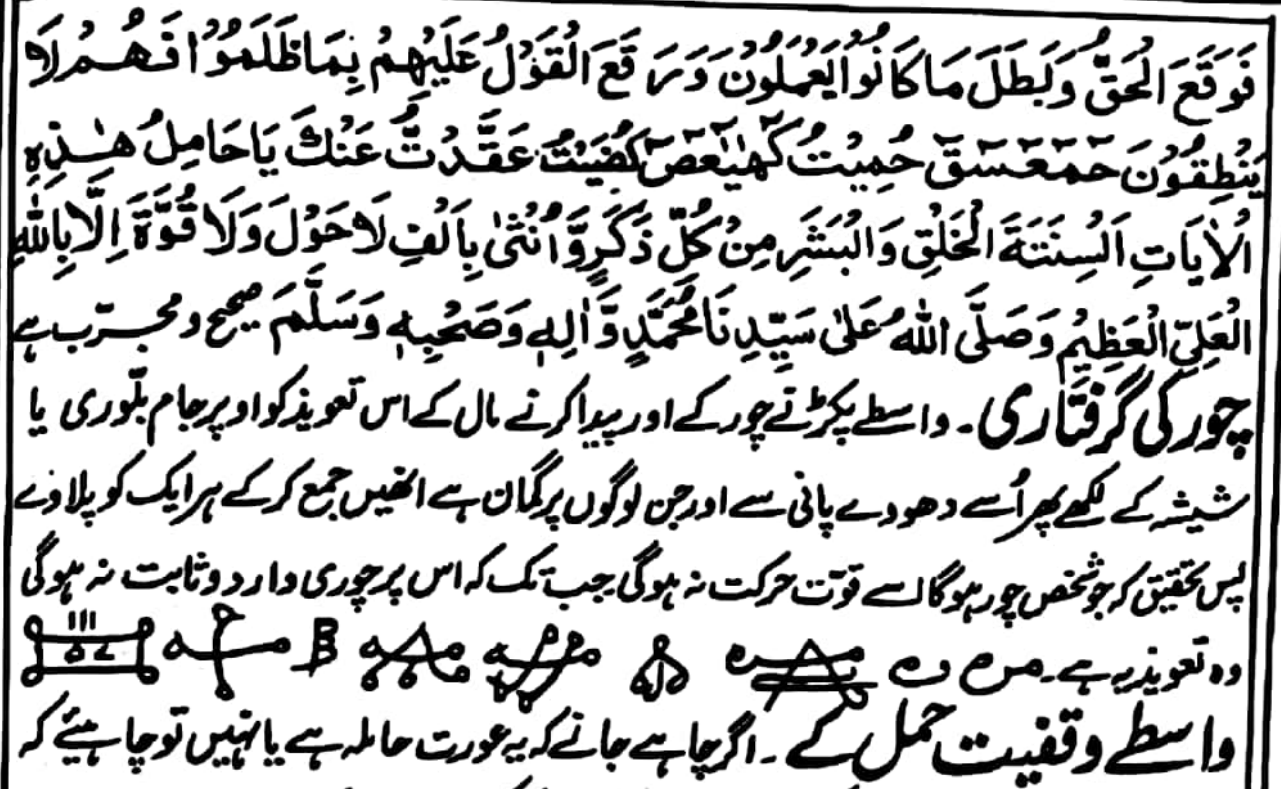 فَوَقَعَ الْحَقُّ وَبَطَلَ مَا كَانُوْا يَعْمَلُوْنَ وَوَقَعَ الْقَوْلُ عَلَيْهِمْ بِمَا ظَلَمُوْا فَهُمْ لَا
يَنْطِقُوْنَ حٓمٓعٓسٓقٓ حُمِيْتُ كٓهٰيٰعٓصٓ كُفِيْتُ عَقَدْتُّ عَنْكَ يَا حَامِلُ هٰذِهِ
الْاٰيَاتِ اَلْسِنَتَةَ الْخَلْقِ وَالْبَشَرِ مِنْ كُلِّ ذَكَرٍ وَّاُنْثٰى بِاَلْفِ لَا حَوْلَ وَلَا قُوَّةَ اِلَّا بِاللّٰهِ
الْعَلِيِّ الْعَظِيْمِ وَصَلَّى اللّٰهُ عَلٰى سَيِّدِنَا مُحَمَّدٍ وَّاٰلِهٖ وَصَحْبِهٖ وَسَلَّمَ صحیح و مجرّب ہے
چور کی گرفتاری۔ واسطے پکڑنے چور کے اور پیدا کرنے مال کے اس تعویذ کو اوپر جام بلّوری یا
شیشہ کے لکھے پھر اُسے دھودے پانی سے اور جن لوگوں پر گمان ہے انھیں جمع کر کے ہر ایک کو پلاوے
پس تحقیق کہ جو شخص چور ہوگا اسے قوّت حرکت نہ ہوگی جب تک کہ اس پر چوری دارد و ثابت نہ ہوگی
وہ تعویذ یہ ہے۔
واسطے وقفیت حمل کے ۔ اگر چاہے جانے کہ یہ عورت حاملہ ہے یا نہیں تو چاہیئے کہ